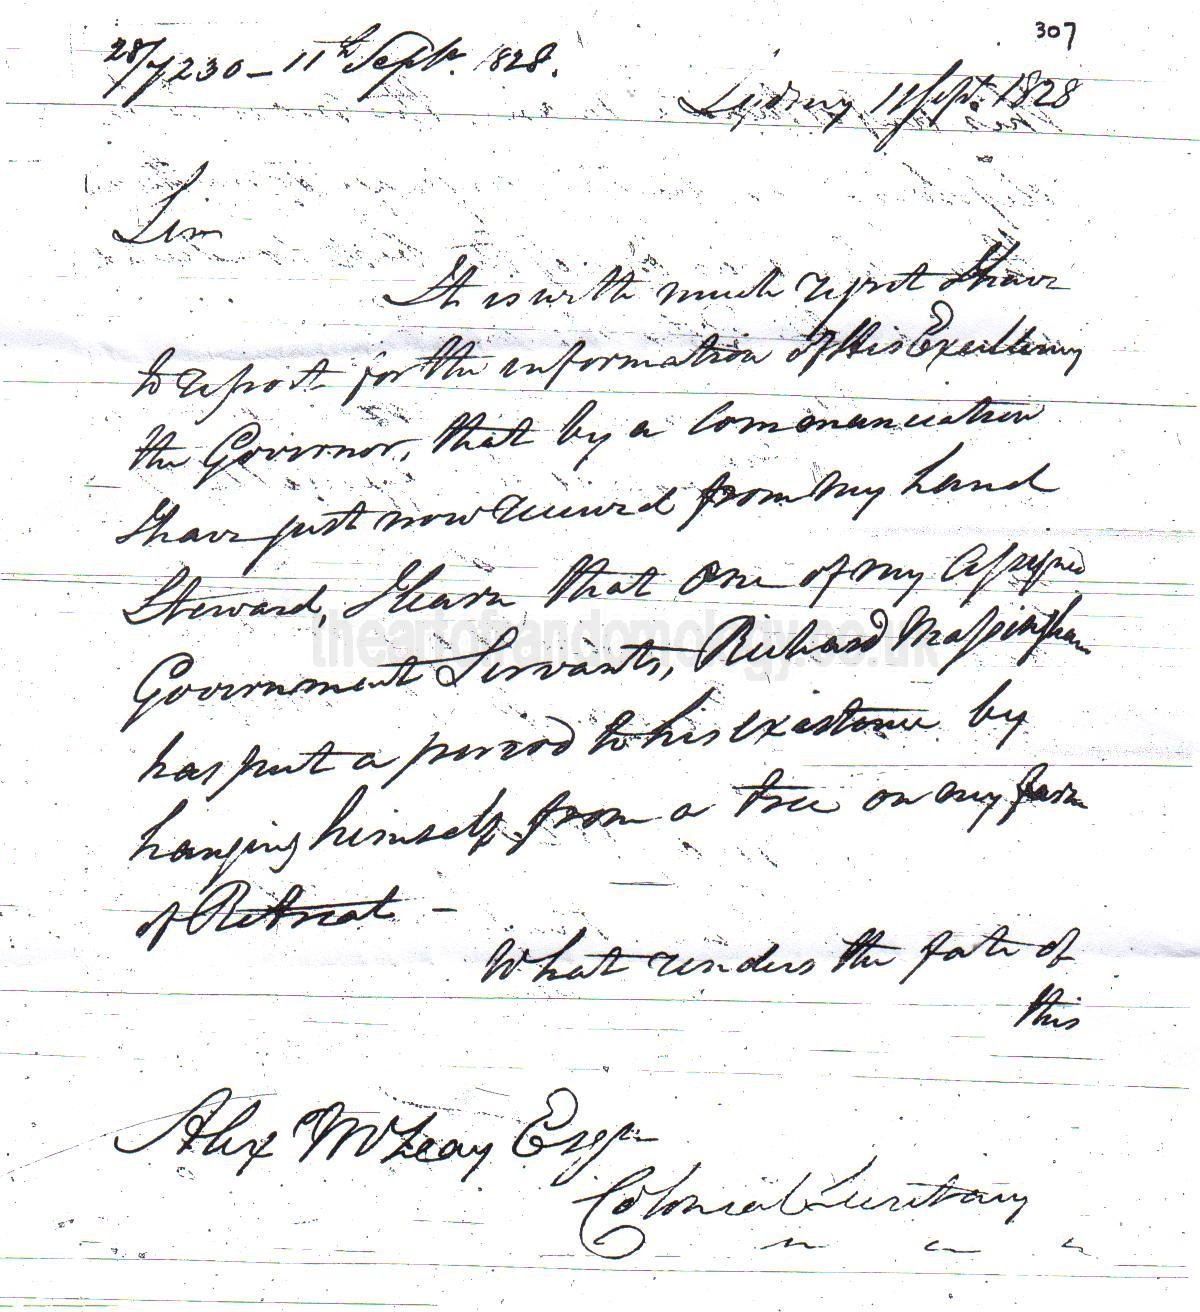 307
28/7230 - 11th Sept. 1828.
Sydney 11 Sept. 1828
Sir
It is with much regret I have
to report for the information of His Excellency
the Governor, that by a Communication
I have just now received from my Land
Steward, I learn that one of my Assigned
Government Servants, Richard Massingham
has put a period to his existence by
hanging himself from a tree on my farm
of Retreat -
What renders the fate of
this
Alex McLeay Esqr
Colonial Secretary
theartofrandomology.co.uk